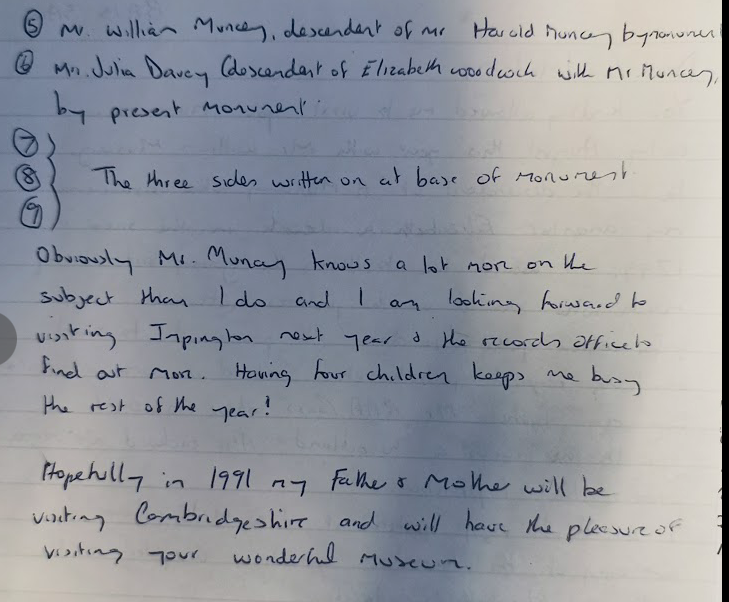 ⑤ Mr. William Muncey, descendent of Mr Harold Muncey by monument
⑥ Mrs. Julia Davey (descendent of Elizabeth Woodcock with Mr Muncey,
by present monument.
⑦
⑧ The three sides written on at base of monument
⑨
Obviously Mr. Muncey knows a lot more on the
subject than I do and I am looking forward to
visiting Impington next year & the records office to
find out more. Having four children keeps me busy
the rest of the year!
Hopefully in 1991 my Father & Mother will be
visiting Cambridgeshire and will have the pleasure of
visiting your wonderful museum.